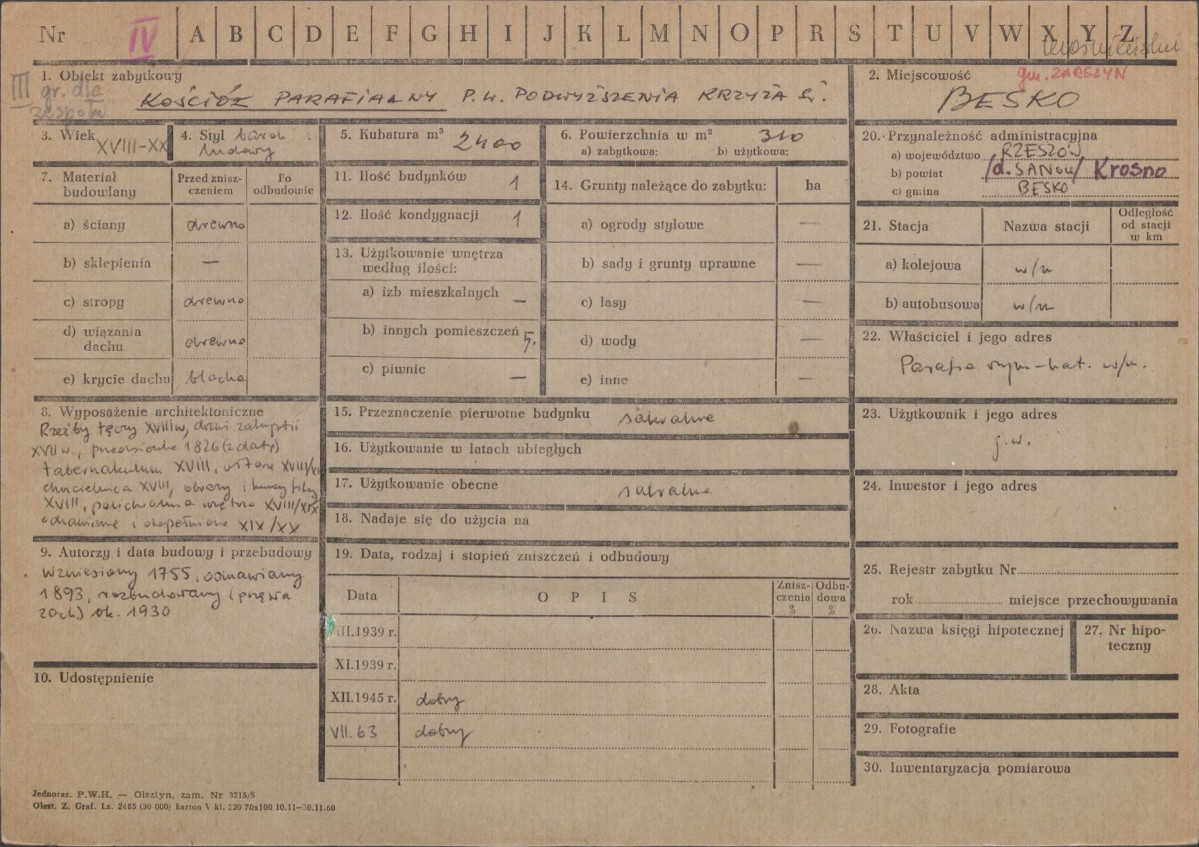 Nr IV A B C D E F G H I J K L M N O P R S T U V W X Y Z
1. Obiekt zabytkowy
III gr. dla zespołu
KOŚCIÓŁ PARAFIALNY P.W. PODWYŻSZENIA KRZYŻA Ś.
2. Miejscowość gm. ZARSZYN
BESKO
3. Wiek XVIII-XX
4. Styl barok ludowy
5. Kubatura m³ 2400
6. Powierzchnia w m² 310
a) zabytkowa: b) użytkowa:
7. Materiał budowlany
Przed zniszczeniem
Po odbudowie
a) ściany drewno
b) sklepienia —
c) stropy drewno
d) wiązania dachu drewno
e) krycie dachu blacha
8. Wyposażenie architektoniczne
Rzeźby tęczy XVIII w, drzwi zakrystii
XVII w, 1826 (z daty)
tabernakulum XVIII, XVIII/XIX
chrzcielnica XVIII, obrazy i
XVIII, polichromia wnętrza XVIII/XIX
odnawiane i uzupełniane XIX/XX
9. Autorzy i data budowy i przebudowy
Wzniesiony 1755, odnawiany
1893, rozbudowany (
zach) ok. 1930
10. Udostępnienie
11. Ilość budynków 1
12. Ilość kondygnacji 1
13. Użytkowanie wnętrza
według ilości:
a) izb mieszkalnych —
b) innych pomieszczeń 5.
c) piwnic —
14. Grunty należące do zabytku: ha
a) ogrody stylowe —
b) sady i grunty uprawne —
c) lasy —
d) wody —
e) inne —
15. Przeznaczenie pierwotne budynku sakralne
16. Użytkowanie w latach ubiegłych
17. Użytkowanie obecne sakralne
18. Nadaje się do użycia na
19. Data, rodzaj i stopień zniszczeń i odbudowy
Data OPIS Zniszczenia % Odbudowa %
VIII.1939 r.
XI.1939 r.
XII.1945 r. dobry
VII. 63 dobry
20. Przynależność administracyjna
a) województwo RZESZÓW
b) powiat /d. SANOK/ Krosno
c) gmina BESKO
21. Stacja Nazwa stacji Odległość od stacji w km
a) kolejowa w/m
b) autobusowa w/m
22. Właściciel i jego adres
Parafia rzym-kat. w/m.
23. Użytkownik i jego adres
j.w.
24. Inwestor i jego adres
25. Rejestr zabytku Nr
rok miejsce przechowywania
26. Nazwa księgi hipotecznej
27. Nr hipoteczny
28. Akta
29. Fotografie
30. Inwentaryzacja pomiarowa
Jednoraz. P.W.H. — Olsztyn, zam. Nr 3215/S
Olszt. Z. Graf. Lz. 2485 (30 000) karton V kl. 220 70x100 10.11—30.11.60